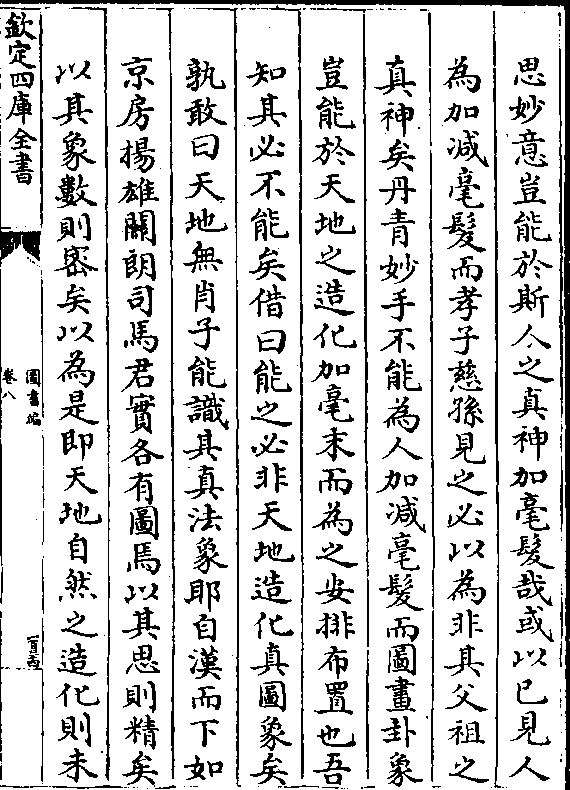 思妙意豈能於斯人之真神加毫髮哉或以已見人
為加減毫髮而孝子慈孫見之必以為非其父祖之
真神矣丹青妙手不能為人加減毫髮而圖畫卦象
豈能於天地之造化加毫末而為之安排布置也吾
知其必不能矣借曰能之必非天地造化真圖象矣
孰敢曰天地無肖子能識其真法象耶自漢而下如
京房揚雄關朗司馬君實各有圖焉以其思則精矣
以其象數則密矣以為是即天地自然之造化則未
欽定四庫全書
圖書編
卷八